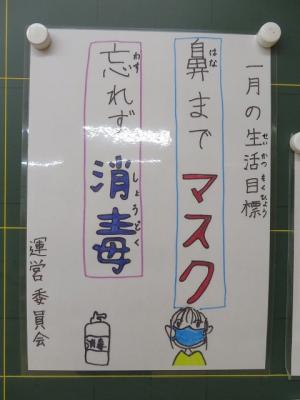 一月の生活目標
せいかつもくひょう
鼻までマスク
はな
忘れず消毒
わす
しょうどく
運営委員会
消毒